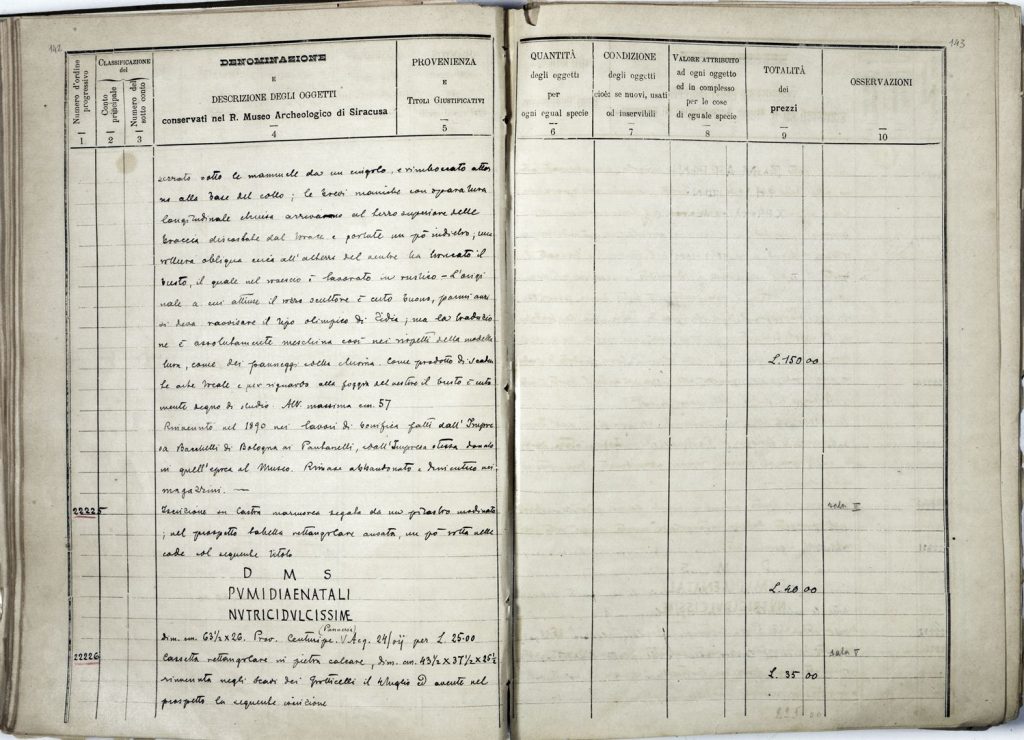 142
143
Numero d'ordine progressivo
1
CLASSIFICAZIONE
del
Conto principale
2
Numero del sotto conto
3
DENOMINAZIONE
E
DESCRIZIONE DEGLI OGGETTI
conservati nel R. Museo Archeologico di Siracusa
4
PROVENIENZA
E
TITOLI GIUSTIFICATIVI
5
QUANTITÀ
degli oggetti
per
ogni egual specie
6
CONDIZIONE
degli oggetti
cioè: se nuovi, usati
od inservibili
7
VALORE ATTRIBUITO
ad ogni oggetto
ed in complesso
per le cose
di eguale specie
8
TOTALITÀ
dei
prezzi
9
OSSERVAZIONI
10
serrato sotto le mammelle da un cingolo, e rimboccato attor
no alla base del collo; le brevi maniche con
longitudinale chiusa arrivano al terzo superiore delle
braccia discostate dal torace e portate un pò indietro; una
obliqua circa all'altezza del ventre ha troncato il
busto, il quale nel rovescio è lavorato in rustico – L'origi
nale a cui attinse il scultore è certo buono,
si deva ravvisare il tipo olimpico di Fidia; ma la traduzio
ne è assolutamente meschina così nei rispetti della modella
tura, come dei panneggi e della chioma. Come prodotto di
le arte locale e per riguardo alla foggia del vestire il busto è certa
mente degno di studio. Alt. massima cm. 57
L. 150 00
Rinvenuto nel 1890 nei lavori di bonifica fatti dall'Impre
sa Bacchetti di Bologna ai Pantanelli, e dall'Impresa stessa donato
in quell'epoca al Museo. Rimase abbandonato e dimenticato nei
magazzini. —
22225
Iscrizione su lastra marmorea segata da un pilastro modinato
; nel prospetto tabella rettangolare ansata, un pò rotta nelle
code col seguente titolo
sala V
D M S
PVMIDIAENATALI
NVTRICIDVLCISSIMÆ
L. 40 00
dim. cm. 63½ x 26. Prov. Centuripe. V. Acq. 24/VII per L. 25.00
22226
Cassetta rettangolare in pietra calcare, dim. cm. 43½ X 37½ X 25½
rinvenuta negli scavi dei Grotticelli il Luglio ed avente nel
prospetto la seguente iscrizione
sala V
L. 35 00